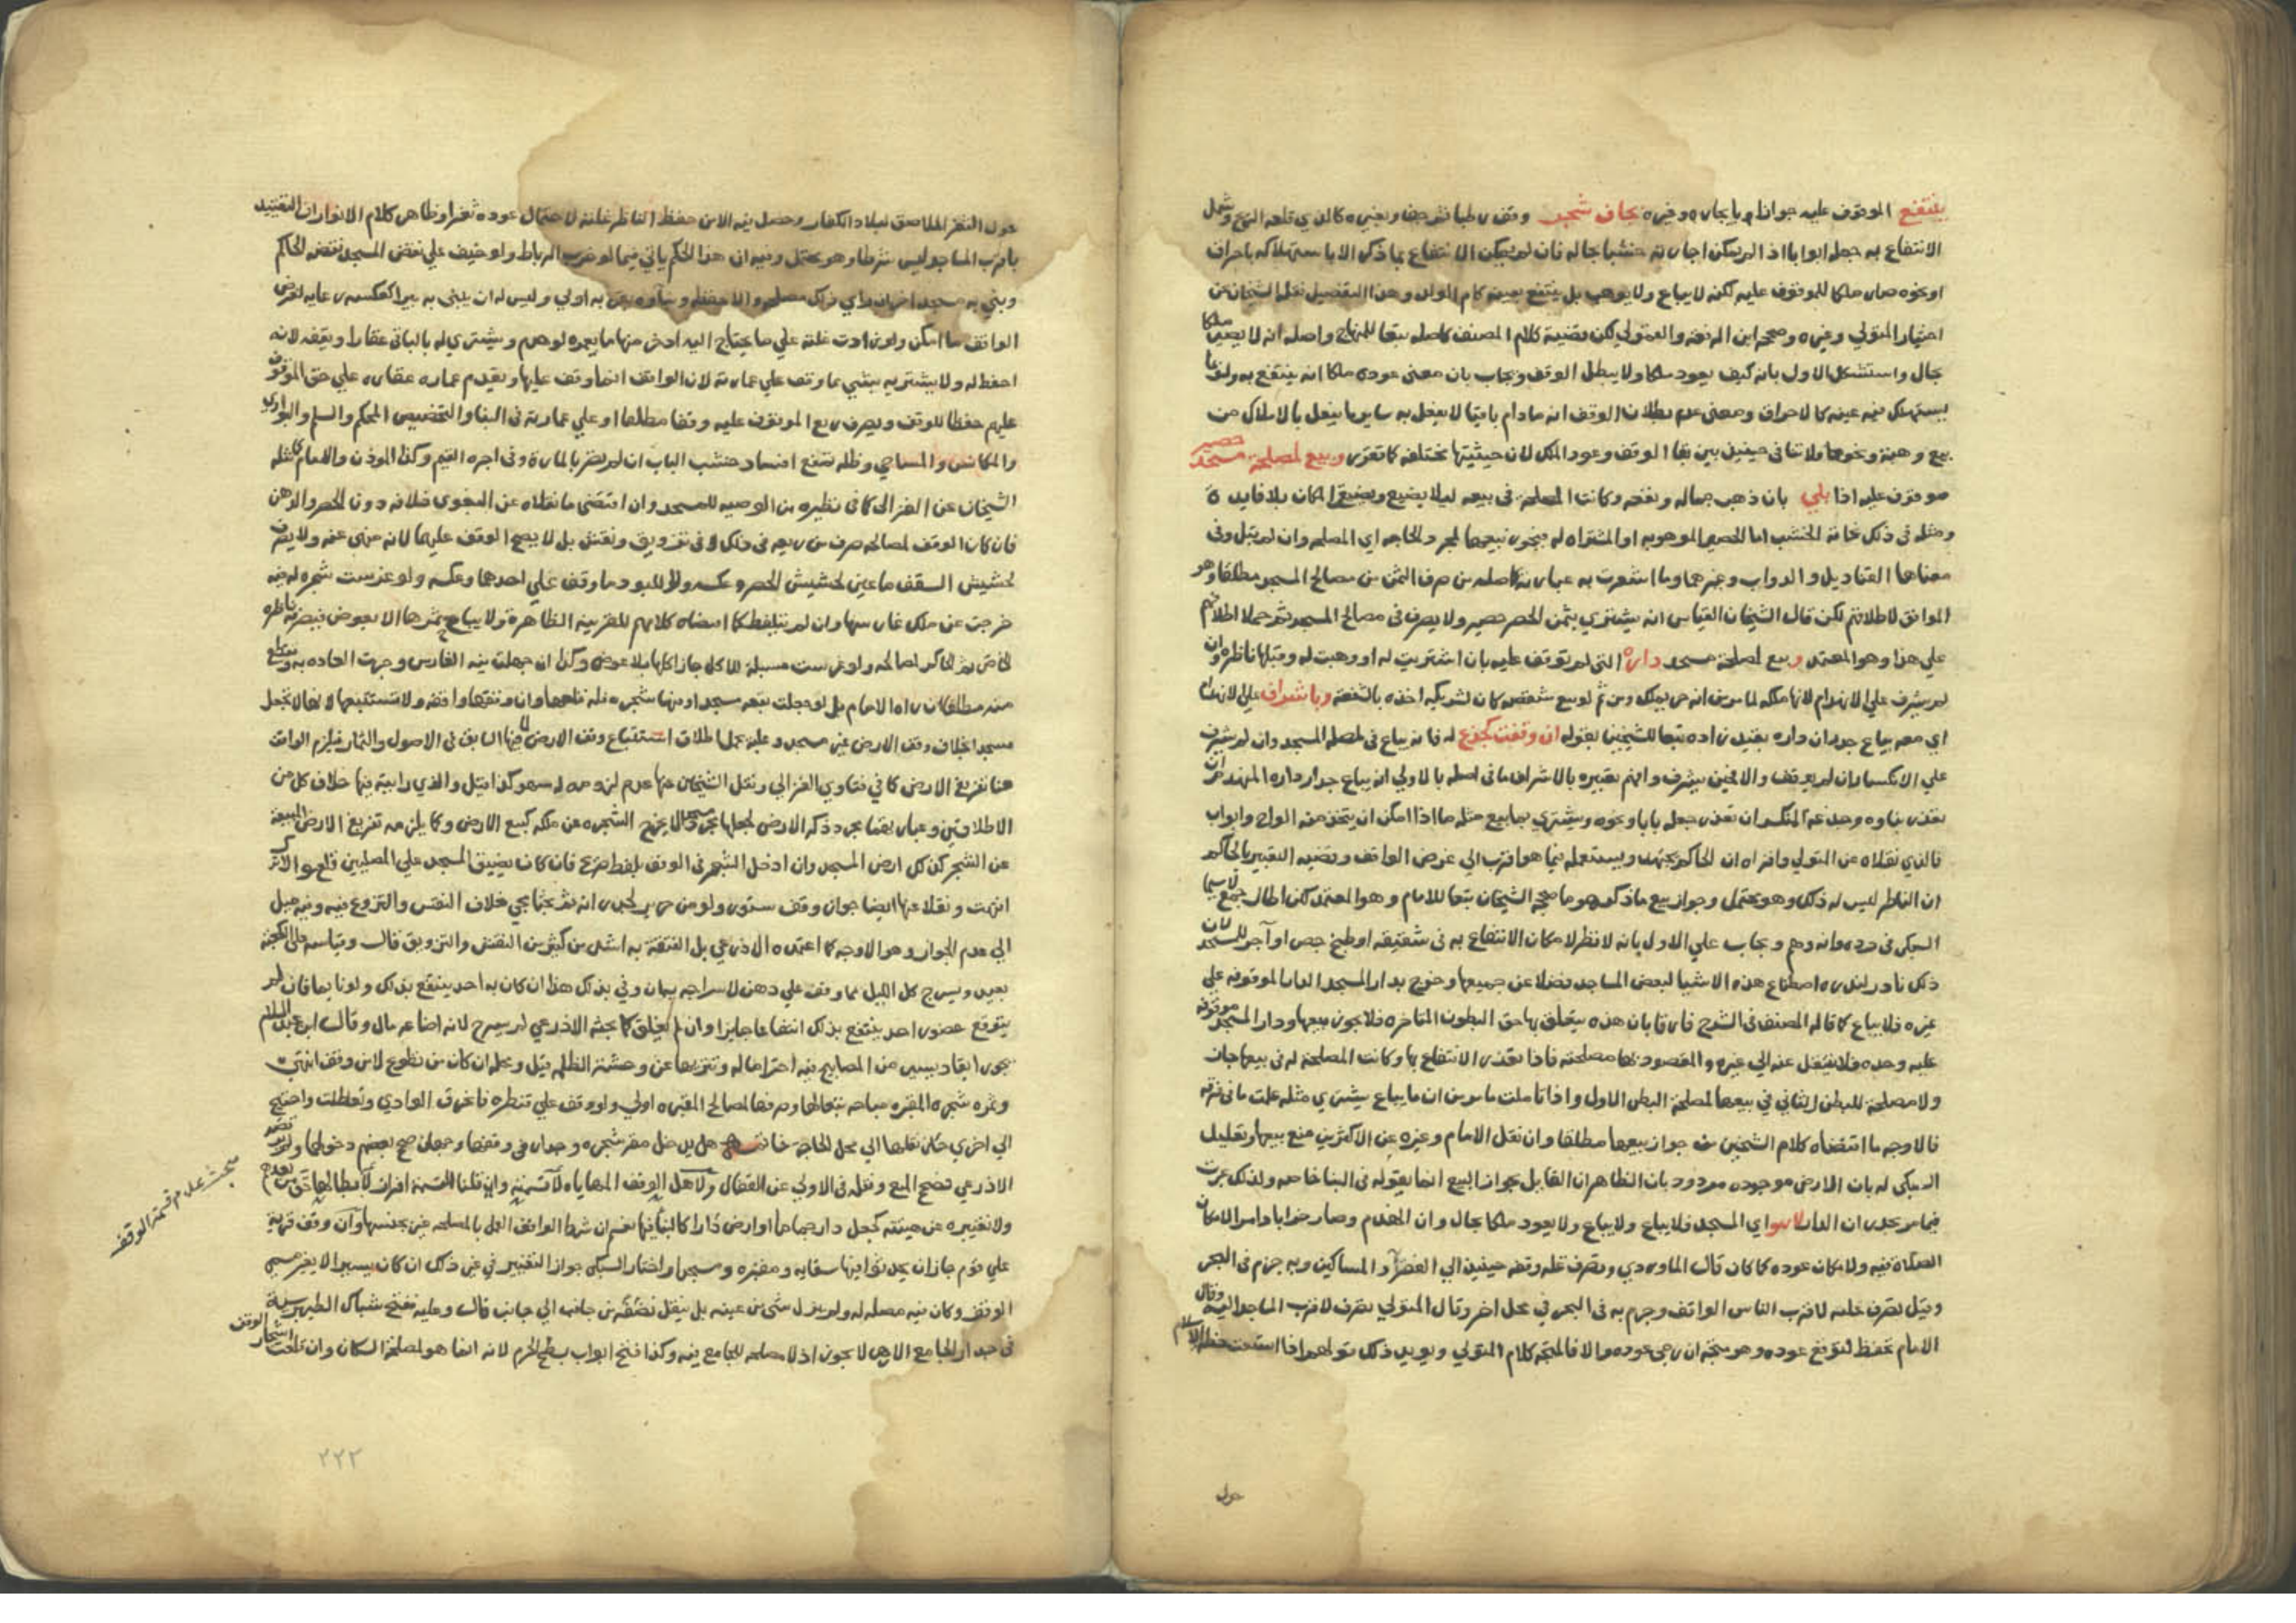 ينتفع الموقوف عليه جوازا بايجاره وغيره بجاف شجر وقف رطبا ثم جف وبغيره كالذي قلعه الريح وشمل
الانتفاع به جعله ابوابا اذا لم يمكن اجارته خشبا بحاله فان لم يمكن الانتفاع بما ذكر الا باستهلاكه باحراق
او نحوه صار ملكا للموقوف عليه لكنه لا يباع ولا يوهب بل ينتفع بعينه كام الولد وهذا التفصيل نقله الشيخان عن
اختيار المتولي وغيره وصححه ابن الرفعة والقمولي لكن قضية كلام المصنف كاصله تبعا للمنهاج واصله انه لا يصير ملكا
بحال واستشكل الاول بانه كيف يعود ملكا ولا يبطل الوقف ويجاب بان معنى عوده ملكا انه ينتفع به ولو فيما
يستهلك فيه عينه كالاحراق ومعنى عدم بطلان الوقف انه ما دام باقيا لا يفعل به ساير ما يفعل بالاملاك من
بيع وهبة ونحوهما ولا تنافي حينئذ بين بقا الوقف وعود الملك لان حيثيتها مختلفة كما تقرر وبيع لمصلحة مسجد حصير
موقوف عليه اذا بلي بان ذهب جماله ونفعه وكانت المصلحة في بيعه ليلا يضيع ويضيق المكان بلا فايدة
ومثله في ذلك نحاتة الخشب اما الحصير الموهوبة او المشتراه له فيجوز بيعها لمجرد الحاجة اي المصلحة وان لم تبل وفي
معناها القناديل والدواب وغيرهما وما اشعرت به عبارته كاصله من صرف الثمن من مصالح المسجد مطلقا وهو
الموافق لاطلاقهم لكن قال الشيخان القياس انه يشتري بثمن الحصر حصير ولا يصرف في مصالح المسجد ثم حملا اطلاقهم
على هذا وهو المعتمد وبيع لمصلحة مسجد داره التي لم توقف عليه بان اشتريت له او وهبت له وقبلها ناظره وان
لم تشرف على الانهدام لانها ملكه لما مر من انه حر يملك ومن ثم لو بيع شقص كان لشريكه اخذه بالشفعة وباشراف على الانهدام
اي معه يباع جدران داره بقيد زاده تبعا للشيخين بقوله ان وقفت كجذع له فانه يباع في لمصلحة المسجد وان لم يشرف
على الانكسار ان لم يوقف والا فحين يشرف وافهم تعبيره بالاشراف ما في اصله بالاولى انه يباع جدار داره المنهدم ان
تعذر بناوه وجذعه المنكسر ان تعذر جعله بابا ونحوه ويشترى بما بيع مثله ما اذا امكن ان يتخذ منه الواح وابواب
فالذي نقلاه عن المتولي واقراه ان الحاكم يجتهد ويستعمله فيما هو اقرب الى غرض الواقف وقضية التعبير بالحاكم
ان الناظر ليس له ذلك وهو محتمل وجواز بيع ما ذكر هو ما صححه الشيخان تبعا للامام وهو المعتمد لكن اطال جمع لا سيما
السبكي في رده وانه وهم ويجاب على الاول بانه لا نظر لامكان الانتفاع به في تسقيفه او طبخ جص او آجر للمسجد لان
ذلك نادر لندرة اصطناع هذه الاشيا لبعض المساجد فضلا عن جميعها وخرج بدار المسجد الدار الموقوفة على
غيره فلا يباع كما قاله المصنف في الشرح فارقا بان هذه يتعلق بها حق البطون المتاخره فلا يجوز بيعها ودار المسجد موقوفة
عليه وحده فلا ينتقل عنه الى غيره والمقصود بها مصلحته فاذا تعذر الانتفاع بها وكانت المصلحة له في بيعها جاز
ولا مصلحة للبطن الثاني في بيعها لمصلحة البطن الاول واذا تاملت ما مر من ان ما يباع يشترى مثله علمت ما في فرقه
فالاوجه ما اقتضاه كلام الشيخين من جواز بيعها مطلقا وان نقل الامام وغيره عن الاكثرين منع بيعها وتعليل
السبكي له بان الارض موجوده مردود بان الظاهر ان القايل بجواز البيع انما يقوله في البنا خاصة ولذلك عبرت
فيما مر بجدران الدار لا هو اي المسجد فلا يباع ولا يباع ولا يعود ملكا بحال وان انهدم وصار خرابا دامر الامكان
الصلاة فيه ولامكان عوده كما كان قال الماوردي وتصرف غلة وقفه حينئذ الى الفقرا والمساكين وبه جزم في البحر
وقيل تصرف غلته لاقرب الناس الواقف وجزم به في البحر في محل اخر وقال المتولي تصرف لاقرب المساجد اليه وقال
الامام تحفظ لتوقع عوده وهو متجه ان رجي عوده والا فالمتجه كلام المتولي ويويد ذلك قولهم اذا استغنت خطة الاسلام
حول
حول الثغر الملاصق لبلاد الكفار وحصل فيه الامن حفظ الناظر غلته لاحتمال عوده ثغرا وظاهر كلام الانوار ان التقييد
باقرب المساجد ليس شرطا وهو محتمل وفيه ان هذا الحكم ياتي فيما لو خرب الرباط ولو خيف على نقض المسجد نقضه الحاكم
وبنى به مسجدا اخر ان راى ذلك مصلحة والا حفظه وبناوه بقربه اولى وليس له ان يبني به بيرا كعكسه رعاية لغرض
الواقف ما امكن ولو زادت غلته على ما يحتاج اليه ادخر منها ما يعمره لو هدم ويشترى له بالباقي عقارا ويقفه لانه
احفظ له ولا يشترى به شي مما وقف على عمارته لان الواقف انما وقف عليها ويقدم عمارة عقاره على حق الموقوف
عليهم حفظا للوقف ويصرف ريع الموقوف عليه وقفا مطلقا او على عمارته في البنا والتجصيص المحكم والسلم والبواري
والمكانس والمساحي وظله تمنع افساد خشب الباب ان لم يضر بالمارة وفي اجرة القيم وكذا الموذن والامام كما نقله
الشيخان عن الغزالي كما في نظيره من الوصية للمسجد وان اقتضى ما نقلاه عن البغوي خلافه دون الحصر والدهن
فان كان الوقف لمصالحه صرف من ريعه في ذلك لا في تزويق ونقش بل لا يصح الوقف عليهما لانه منهي عنه ولا يصرف
لحشيش السقف ما عين لحشيش الحصر وعكسه ولا للبود ما وقف على احدهما وعكسه ولو غرست شجره له فيه
خرجت عن ملك غارسها وان لم يتلفظ كما اقتضاه كلامهم للقرينة الظاهرة ولا يباح ثمرها الا بعوض فيصرفه ناظره
الخاص ثم الحاكم لمصالحه ولو غرست مسبلة للاكل جاز اكلها بلا عوض وكذا ان جهلت نية الغارس وجرت العاده به وتقلع
منه مطلقا كان راه الامام بل لو جعلت بقعه مسجدا وفيها شجره فله قلعها وان وقفها واقفه ولا تستتبعها لانها لا تجعل
مسجدا بخلاف وقف الارض غير مسجد وعليه يحمل اطلاق استتباع وقف الارض لما فيها السابق في الاصول والثمار فيلزم الواقف
هنا تفريغ الارض كما في فتاوى الغزالي ونقل الشيخان عنها عدم لزومه له سهو كذا قيل والذي رايته فيها خلاف كل من
الاطلاقين وعبارتها بمجرد ذكر الارض لجعلها مسجدا لا يخرج الشجره عن ملكه كبيع الارض وكما يلزمه تفريغ الارض المبيعة
عن الشجر كذلك ارض المسجد وان ادخل الشجر في الوقف بلفظ صريح فان كان يضيق المسجد على المصلين قلع والا ترك
انتهت ونقلا عنها ايضا جواز وقف ستور ولو من حرير لجدرانه ثم بحثا مجي خلاف النقش والتزويق فيه وفيه ميل
الى عدم الجواز وهو الاوجه كما اعتمده الاذرعي بل الفتنة به اشد من كثير من النقش والتزويق قال وقياسه على الكعبة
بعيد ويسرج كل الليل مما وقف على دهن لاسراجه بهان وفي بذلك هذا ان كان به احد ينتفع بذلك ولو نايما فان لم
يتوقع حضور احد ينتفع بذلك انتفاعا جايزا وان لم يغلق كما بحثه الاذرعي لم يسرج لانه اضاعة مال وقال ابن عبد السلام
يجوز ايقاد يسير من المصابيح فيه احتراما له وتنزيها عن وحشة الظلمة قيل ومحله ان كان من تطوع لا من وقف انتهى
وثمرة شجرة المقبره مباحه تبعا لها وصرفها لمصالح المقبره اولى ولو وقف على قنطره فانخرق الوادي وتعطلت واحتيج
الى اخرى جاز نقلها الى محل الحاجة خاتمة هل يدخل مقر شجره وجدار في وقفها وجهان صحح بعضهم دخولهما وتردد
الاذرعي فصحح المنع ونقله في الاولى عن القفال ولاهل الوقف المهاياه لا قسمته وان قلنا القسمة افراز لابطالها حق من بعدهم
ولا تغييره عن هيئته كجعل دار حماما او ارض دارا كالبنا فيها نعم ان شرط الواقف العمل بالمصلحة غير بحسبها وان وقف قرية
على قوم جاز ان يحدثوا فيها سقاية ومقبرة ومسجدا واختار السبكي جواز التغيير في غير ذلك ان كان يسيرا لا يغير مسمى
الوقف وكان فيه مصلحة له ولم يزل شي من عينه بل ينقل نقضه من جانب الى جانب قال وعليه ففتح شباك الطيبرسية
في جدار الجامع الازهر لا يجوز اذ لا مصلحة للجامع فيه وكذا فتح ابواب بسطح الحرم لانه انما هو لمصلحة السكان وان قلعت اشجار الوقف
مبحث عدم قسمة الوقف
٢٢٢